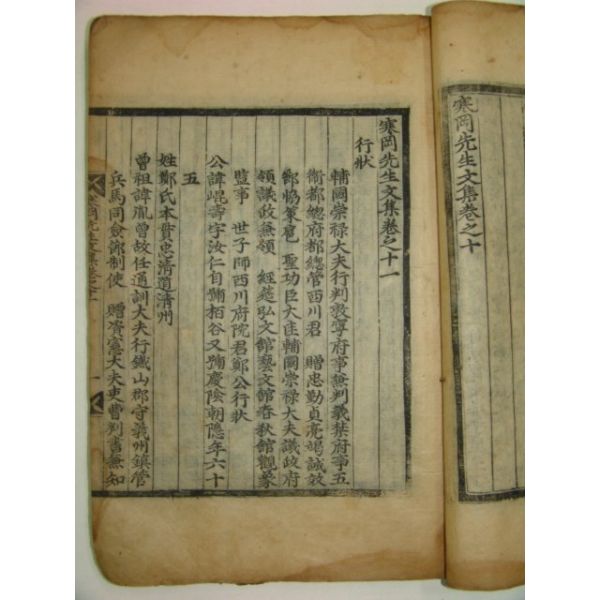 寒岡先生文集卷之十
寒岡先生文集卷之十一
行狀
輔國崇祿大夫行判敦寧府事兼判義禁府事五
衛都總府都總管西川君 贈忠勤貞亮竭誠效
節協策扈 聖功臣大匡輔國崇祿大夫議政府
領議政兼領 經筵弘文館藝文館春秋館觀象
監事 世子師西川府院君鄭公行狀
公諱崐壽字汝仁自號栢谷又號慶陰朝隱年六十
五
姓鄭氏本貫忠淸道淸州
曾祖諱胤曾故任通訓大夫行鐵山郡守義州鎭管
兵馬同僉節制使 贈資憲大夫吏曹判書兼知